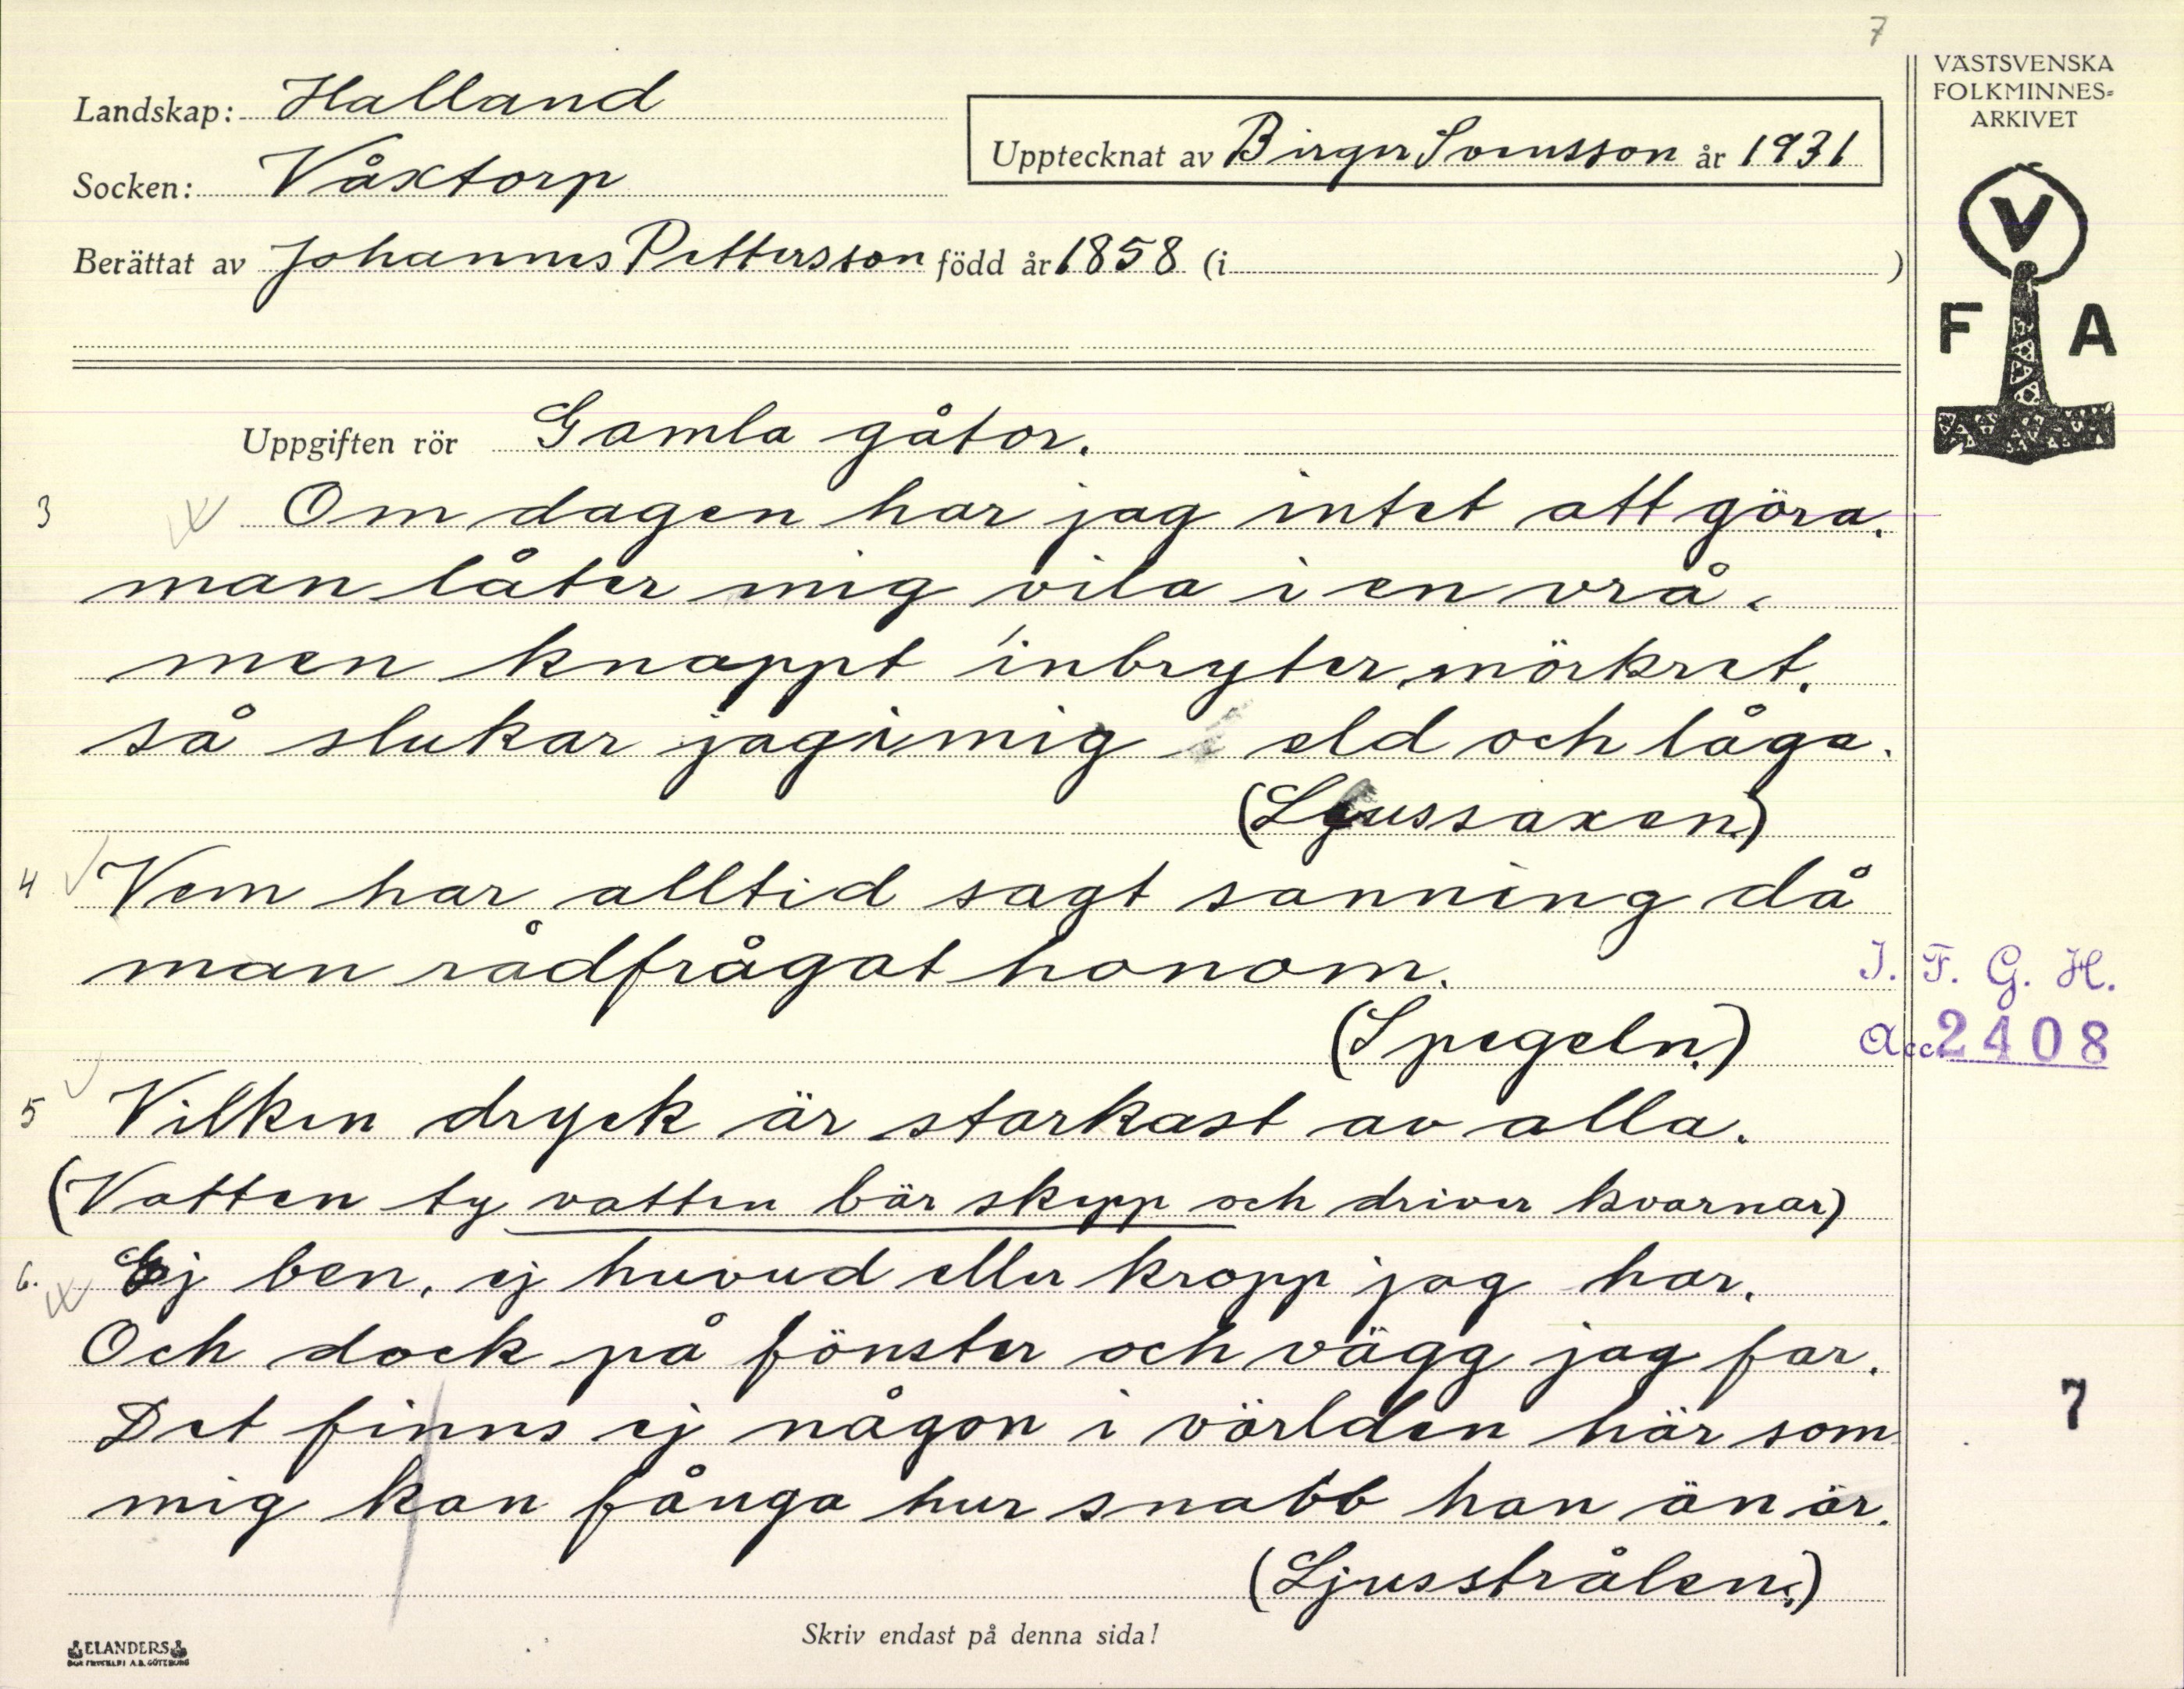 7
VÄSTSVENSKA
FOLKMINNES-
ARKIVET
Landskap: Halland
Socken: Våxtorp
Upptecknat av Birger Svensson år 1931
Berättat av Johannes Pettersson född år 1858 (i )
V
F A
Uppgiften rör Gamla gåtor.
3 Om dagen har jag intet att göra.
man låter mig vila i en vrå.
men knappt inbryter mörkret.
så slukar jag i mig eld och låga.
(Ljussaxen)
4 Vem har alltid sagt sanning då
man rådfrågat honom.
(Spegeln.)
I. F. G. H.
Acc 2408
5 Vilken dryck är starkast av alla.
(Vatten ty vatten bär skepp och driver kvarnar)
6. Ej ben, ej huvud eller kropp jag har.
Och dock på fönster och vägg jag far.
Det finns ej någon i världen här som
mig kan fånga hur snabb han än är.
(Ljusstrålen.)
7
Skriv endast på denna sida!
ELANDERS
BOKTRYCKERI A.B. GÖTEBORG